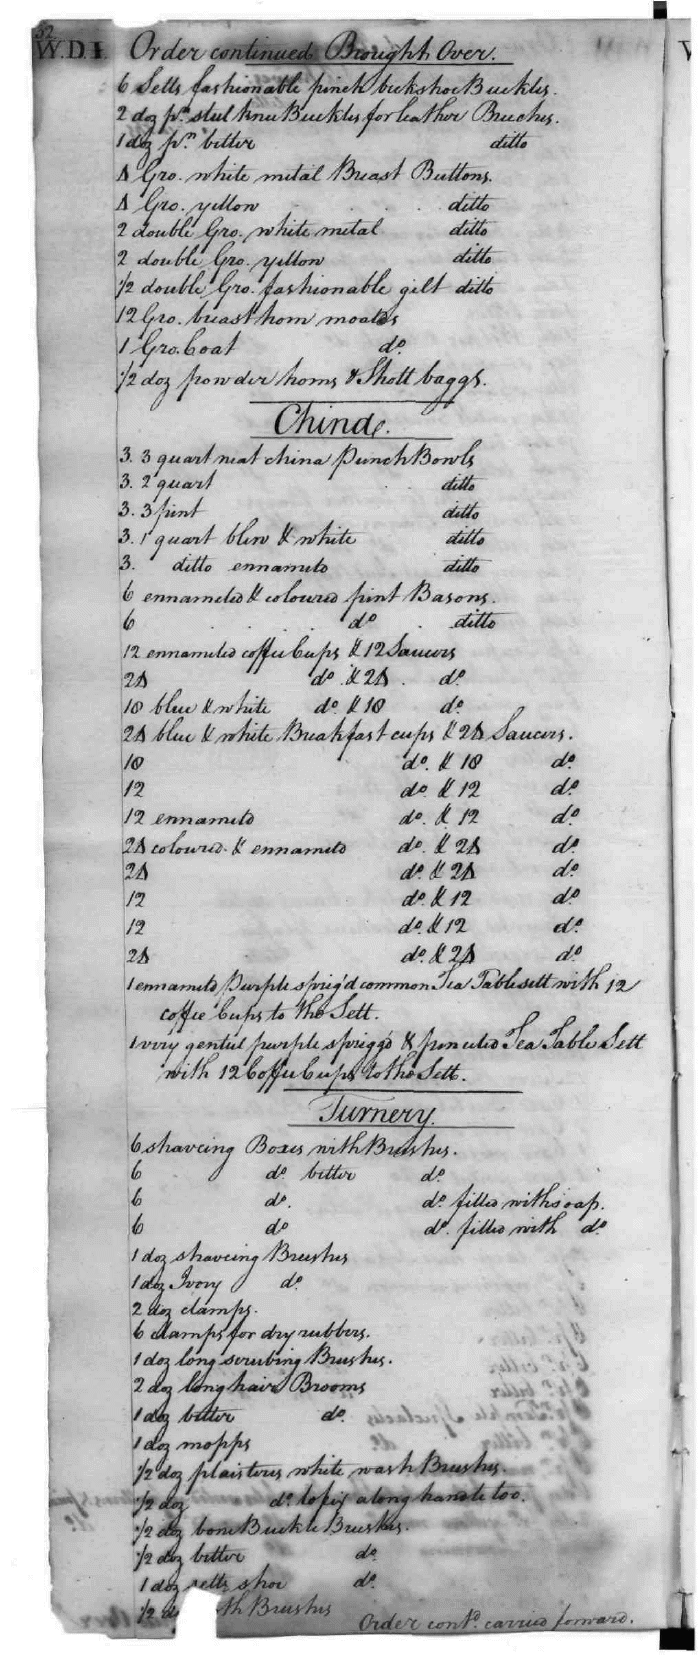 52
W.D.I. Order continued Brought Over.
6 Setts fashionable pinch beck shoe Buckles.
2 doz pr. steel knee Buckles for leather Breeches.
1 doz pr. better ditto
4 Gro. white metal Breast Buttons.
4 Gro. yellow ditto
2 double Gro. white metal ditto
2 double Gro. yellow ditto
1/2 double Gro. fashionable gilt ditto
12 Gro. breast horn moalds
1 Gro. Coat do.
1/2 doz powder horns & Shott baggs.
China.
3. 3 quart neat china Punch Bowls
3. 2 quart ditto
3. 3 pint ditto
3. 1 quart blew & white ditto
3. ditto ennameld ditto
6 ennameled & coloured pint Basons.
6 do ditto
12 ennameled coffee Cups & 12 Saucers
24 do. & 24 do.
18 blue & white do. & 18 do.
24 blue & white Breakfast cups & 24 Saucers.
18 do. & 18 do.
12 do. & 12 do.
12 ennameld do. & 12 do.
24 coloured & ennameld do. & 24 do.
24 do. & 24 do.
12 do. & 12 do.
12 do. & 12 do.
24 do. & 24 do.
1 ennameld Purple sprig'd common Tea Table sett with 12
coffee Cups to the Sett.
1 very genteel purple sprigg'd & penciled Tea Table Sett
with 12 Coffee Cups to the Sett.
Turnery.
6 shaveing Boxes with Brushes.
6 do. better do.
6 do. do. filled with soap.
6 do do. filled with do.
1 doz shaveing Brushes
1 doz Ivory do.
2 doz clamps.
6 clamps for dry rubbers.
1 doz long scrubing Brushes.
2 doz long hair Brooms
1 doz better do.
1 doz mopps
1/2 doz plaisterers white wash Brushes.
1/2 doz do. to fix a long handle too.
1/2 doz bone Buckle Brushes.
1/2 doz better do.
1 doz setts shoe do.
1/2 Brushes
Order contd. carried forward.